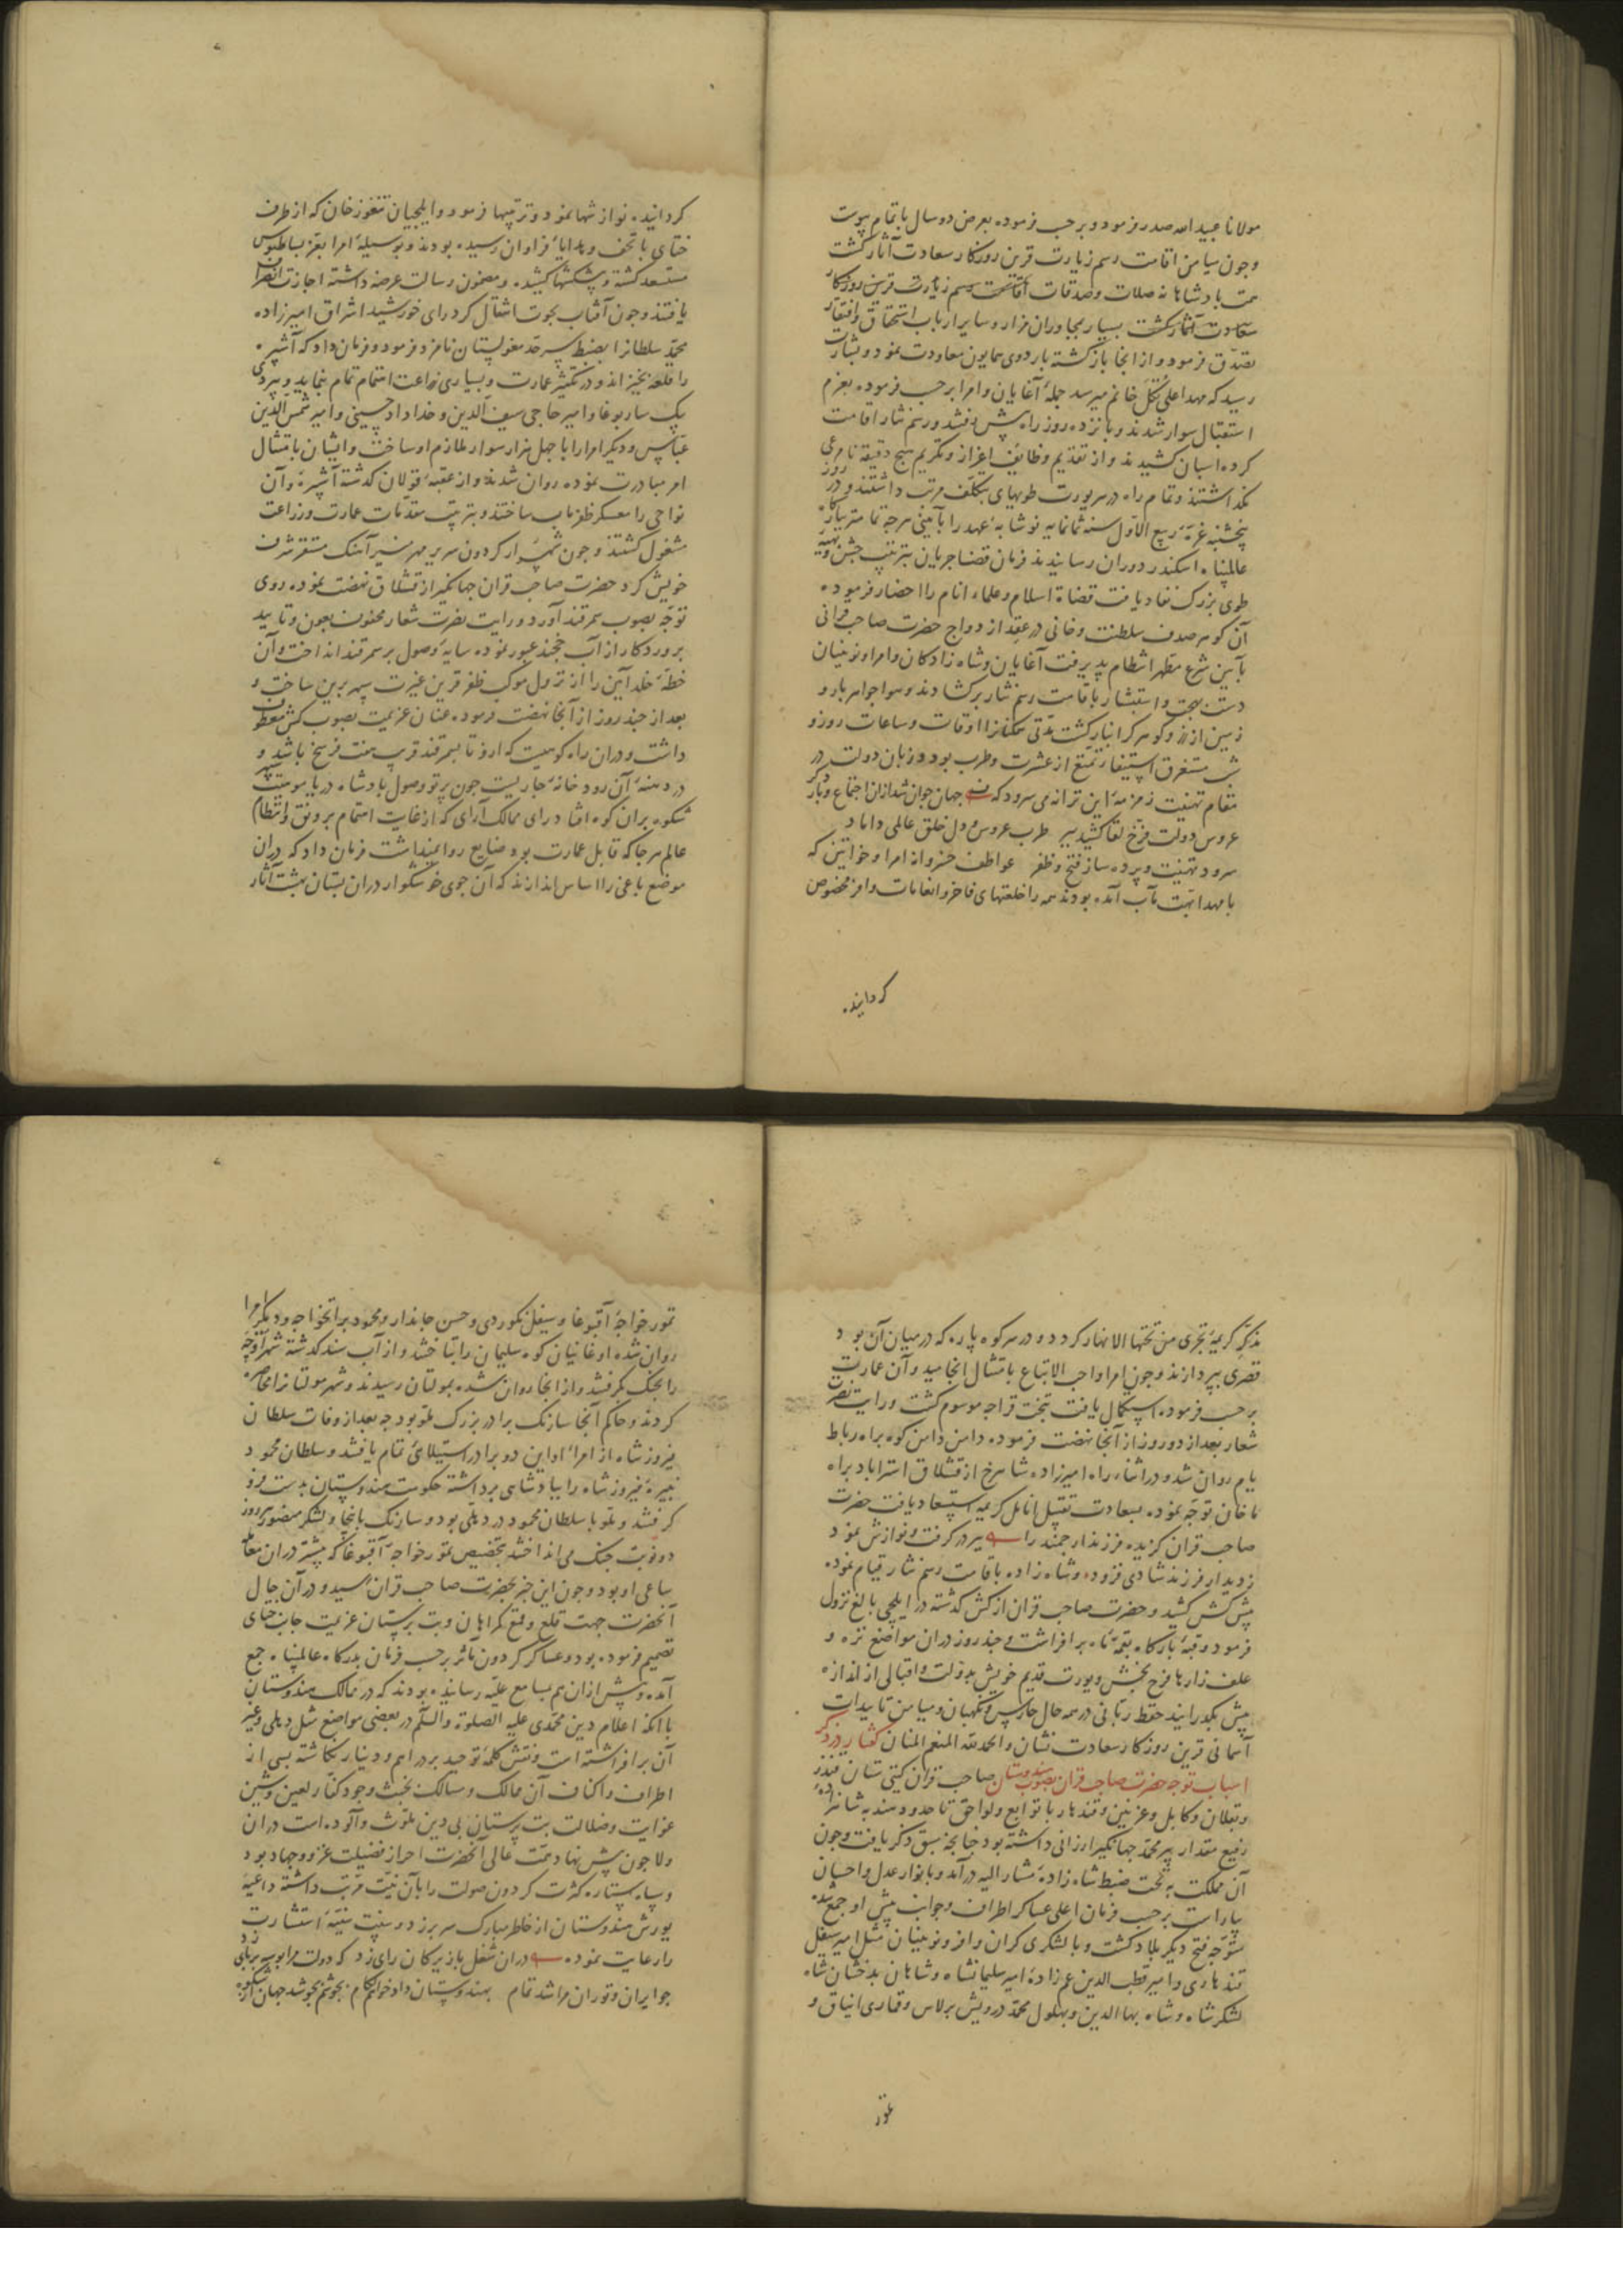 مولانا عبید الله صدر فرمود و بر حسب فرموده بعرض دو سال باتمام پیوست
و جون میامن اقامت رسم زیارت قرین روزکار سعادت آثار کشت
همت بادشاهانه صلات و صدقات اقامت رسم زیارت قرین روزکار
سعادت آثار کشت بسیار بمجاوران مزار و سایر ارباب استحقاق و افتقار
تصدق فرمود و از انجا بازکشته باردوی همایون معاودت نمود و بشارت
رسید که مهد اعلی تکل خانم میرسد جملهٔ آغایان و امرا بر حسب فرموده بعزم
استقبال سوار شدند و پانزده روز راه پیش رفتند و رسم نثار اقامت
کرده اسبان کشیدند و از تقدیم وظایف اعزاز و تکریم هیچ دقیقه نامرعی
نکذاشتند و تمام راه در هر یورت طویهای بتکلف مرتب داشتند و در روز
پنجشنبه غرهٔ ربیع الاول سنه ثمانمایه نوشابهٔ عهد را بآیینی هرجه تمامتر ببارکاه
عالمپناه اسکندر دوران رسانیدند فرمان قضا جریان بترتیب جشن و تهیهٔ
طوی بزرک نفاد یافت قضاة اسلام و علماء انام را احضار فرموده
آن کوهر صدف سلطنت و خانی در عقد ازدواج حضرت صاحب قرانی
بآیین شرع مطهر انتظام پذیرفت آغایان و شاه زادکان و امرا و نوینیان
دست بهجت و استبشار باقامت رسم نثار برکشادند و هوا جواهر بار و
زمین از زر و کوهر کرانبار کشت مدتی همکنانرا اوقات و ساعات روز و
شب مستغرق استیفاء تمتع از عشرت و طرب بود و زبان دولت در
مقام تهنیت زمزمهٔ این ترانه می سرود که جهان جوان شد ازان اجتماع و بار دکر
عروس دولت فرخ لقا کشید ببر طرب عروس و دل خلق عالمی داماد
سرود تهنیت و پرده ساز فتح و ظفر عواطف خسروانه امرا و خواتین که
با مهد ابهت مآب آمده بودند همه را خلعتهای فاخر و انعامات وافر مخصوص
کردانیده
کردانیده نوازشها نمود و ترتیبها فرمود و ایلجیان تنغوز خان که از طرف
ختای با تحف و هدایاء فراوان رسیده بودند و بوسیلهٔ امرا بعز بساطبوس
مستسعد کشته و پیشکشها کشیده و مضمون رسالت عرضه داشته اجازت انصراف
یافتند و جون آفتاب بحوت انتقال کرد رای خورشید اشراق امیرزاده
محمد سلطانرا بضبط سرحد مغولستان نامزد فرمود و فرمان داد که آشپره
را قلعه بخیز اند و در تکثیر عمارت و بسیاری زراعت اهتمام تمام نماید و بیردی
بیک ساربوغا و امیر حاجی سیف الدین و خداداد حسینی و امیر شمس الدین
عباس و دیکر امرا را با جهل هزار سوار ملازم او ساخت و ایشان بامتثال
امر مبادرت نموده روان شدند و از عقبهٔ قولان کذشته آشپره و آن
نواحی را معسکر ظفر مآب ساختند و بترتیب مقدمات عمارت و زراعت
مشغول کشتند و جون شهسوار کردون سریر مهر منیر آهنک مستقر شرف
خویش کرد حضرت صاحب قران جهانکیر از قشلاق نهضت نموده روی
توجه بصوب سمرقند آورد و رایت نصرت شعار محفوف بعون و تایید
پروردکار از آب خجند عبور نموده سایهٔ وصول بر سمرقند انداخت و آن
خطهٔ خلد آیین را از نزول موکب ظفر قرین غیرت سپهر برین ساخت و
بعد از جند روز از آنجا نهضت فرموده عنان عزیمت بصوب کش معطوف
داشت و دران راه کوهیست که ازو تا سمرقند قریب هفت فرسخ باشد و
در دهنهٔ آن رود خانهٔ جاریست جون پرتو وصول بادشاه دریا موهبت سپهر
شکوه بران کوه افتاد رای ممالک آرای که از غایت اهتمام برونق و انتظام
عالم هر جا که قابل عمارت بود ضایع روا نمیداشت فرمان داد که دران
موضع باغی را اساس اندازند که آن جوی خوشکوار دران بستان بهشت آثار
مذکر کریمهٔ تجری من تحتها الانهار کردد و در سر کوه پاره که در میان آن بود
قصری بپردازند و جون امر واجب الاتباع بامتثال انجامید و آن عمارت
بر حسب فرموده استکمال یافت بتخت قراجه موسوم کشت و رایت نصرت
شعار بعد از دو روز از آنجا نهضت فرموده دامن دامن کوه براه رباط
یام روان شد و در اثناء راه امیرزاده شاهرخ از قشلاق استراباد براه
ماخان توجه نموده بسعادت تقبیل انامل کریمه استسعاد یافت حضرت
صاحب قران کزیده فرزند ارجمند را ببر در کرفت و نوازش نمود
ز دیدار فرزند شادی فزود و شاه زاده باقامت رسم نثار قیام نموده
پیش کش کشید و حضرت صاحب قران از کش کذشته در ایلجی بالغ نزول
فرمود و قبهٔ بارکاه بقمهٔ ماه برافراشت و جند روز دران مواضع نزه و
علف زارها فرح بخش و یورت قدیم خویش بدولت و اقبالی از اندازه
بیش بکذرانید حفظ ربانی در همه حال حارس و نکهبان و میامن تاییدات
آسمانی قرین روزکار سعادت نشان و الحمد لله المنعم المنان کفتار در ذکر
اسباب توجه حضرت صاحب قران بصوب هندوستان صاحب قران کیتی ستان قندز
و بقلان و کابل و غزنین و قندهار با توابع و لواحق تا حدود هند بشاهزادهٔ
رفیع مقدار پیر محمد جهانکیر ارزانی داشته بود جنانجه سبق ذکر یافت و جون
آن مملکت به تحت ضبط شاه زادهٔ مشار الیه درآمد و بانوار عدل و احسان
بیاراست بر حسب فرمان اعلی عساکر اطراف و جوانب پیش او جمع شده
متوجه فتح دیکر بلاد کشت و با لشکری کران وافر و نوینیان مثل امیر سیفل
قندهاری و امیر قطب الدین عم زادهٔ امیر سلیمانشاه و شاهان بدخشان شاه
لشکر شاه و شاه بها الدین و بهلول محمد درویش برلاس و قماری ایناق و
تمور
تمور خواجهٔ آقبوغا و سیفل نکوردی و حسن جاندار و محمود براتخواجه و دیکر امرا
روان شده اوغانیان کوه سلیمان را بتاختند و از آب سند کذشته شهر اوجه
را بجنک بکرفتند و از انجا روان شده بمولتان رسیدند و شهر مولتانرا محاصره
کردند و حاکم آنجا سارنک برادر بزرک ملو بود جه بعد از وفات سلطان
فیروز شاه از امراء او این دو برادر استیلائی تمام یافتند و سلطان محمود
نبیرهٔ فیروز شاه را بپادشاهی برداشته حکومت هندوستان بدست فرو
کرفتند و ملو با سلطان محمود در دهلی بود و سارنک بانجا و لشکر منصور هر روز
دو نوبت جنک می انداختند بتخصیص تمور خواجهٔ آقبوغا که بیشتر دران معامله
ساعی او بود و جون این خبر بحضرت صاحب قران رسید و در آن حال
آنحضرت جهت قلع و قمع کمراهان و بت پرستان عزیمت جانب ختای
تصمیم فرموده بود و عساکر کردون مآثر بر حسب فرمان بدرکاه عالمپناه جمع
آمده و پیش ازان هم بمسامع علیه رسانیده بودند که در ممالک هندوستان
با انکه اعلام دین محمدی علیه الصلوة والسلم در بعضی مواضع مثل دهلی و غیر
آن برافراشته است و نقش کلمهٔ توحید بر درهم و دینار نکاشته بسی از
اطراف و اکناف آن ممالک و مسالک بخبث وجود کفار لعین و شین
غوایت و ضلالت بت پرستان بی دین ملوث و آلوده است دران
ولا جون پیش نهاد همت عالی آنحضرت احراز فضیلت غزو و جهاد بود
و سپاه ستاره کثرت کردون صولت را بآن نیت مرتب داشته داعیهٔ
یورش هندوستان از خاطر مبارک سر بر زد و سنت سنیهٔ استشارت
را رعایت نموده دران شغل با زیرکان رای زد که دولت مرا بوسه بر پای زد
جو ایران و توران مرا شد تمام بهندوستان داد خواهم لکام بجوشم بجوشد جهان از شکوه